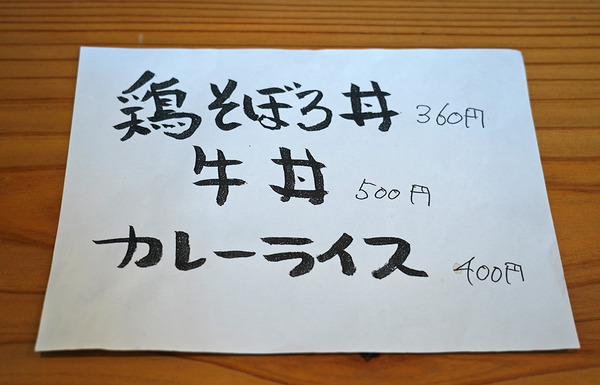 鶏そぼろ丼 360円
牛丼 500円
カレーライス 400円